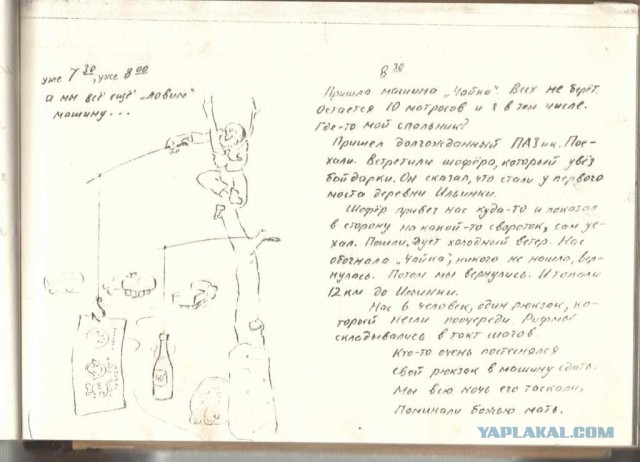 уже 7³⁰, уже 8⁰⁰
а мы всё ещё „ловим“
машину...
8³⁰
Пришла машина „Чайка“. Всех не берёт.
Остается 10 матросов и я в том числе.
Где-то мой спальник?
Пришел долгожданный ПАЗик. Пое-
хали. Встретили шофёра, который увёз
байдарки. Он сказал, что стали у первого
моста деревни Ильинки.
Шофёр привез нас куда-то и показал
в сторону на какой-то свароток, сам уе-
хал. Пошли. Дует холодный ветер. Нас
обогнала „Чайка“, никого не нашла, вер-
нулась. Потом мы вернулись. И топали
12 км до Ильинки.
Нас 8 человек, один рюкзак, ко-
торый несли поочереди. Рифмы
складывались в такт шагов
Кто-то очень постеснялся
Свой рюкзок в машину сдать.
Мы всю ночь его таскали,
Поминали божью мать.
YAPLAKAL.COM